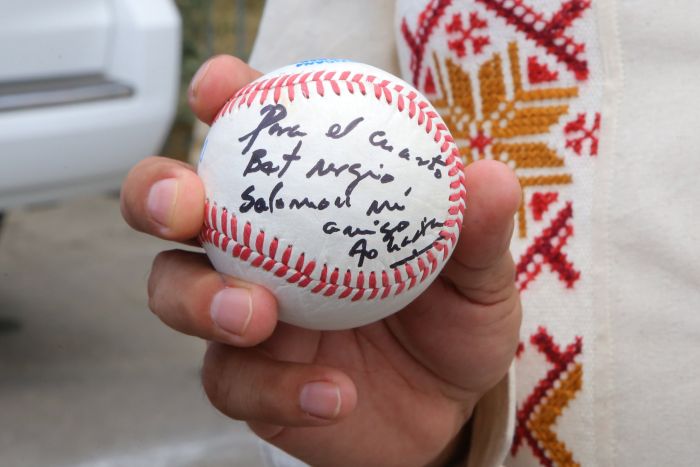 Para el cuarto
Bat sergio
Salomon mi
amigo